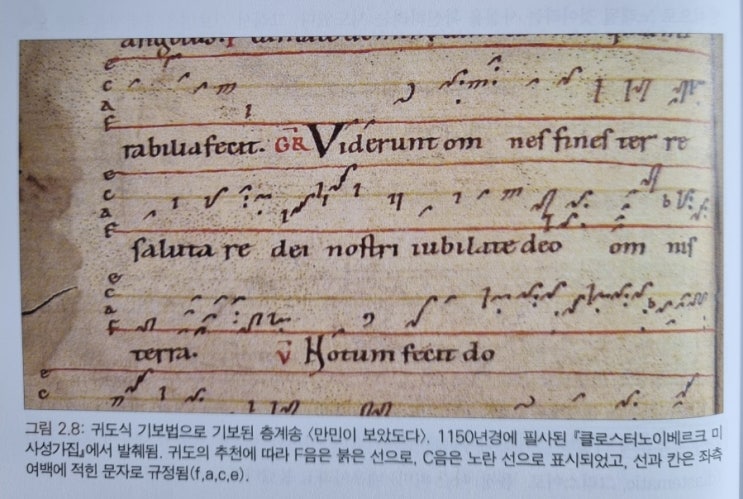 angelus.
e
c
a
f
rabilia fecit. GR Viderunt om nes fines ter re
e
c
a
f
saluta re dei nostri iubilate deo om nis
e
c
a
f
terra. V Notum fecit do
e
c
그림 2.8: 귀도식 기보법으로 기보된 층계송 〈만민이 보았도다〉. 1150년경에 필사된 『클로스터노이베르크 미
사성가집』에서 발췌됨. 귀도의 추천에 따라 F음은 붉은 선으로, C음은 노란 선으로 표시되었고, 선과 칸은 좌측
여백에 적힌 문자로 규정됨(f,a,c,e).